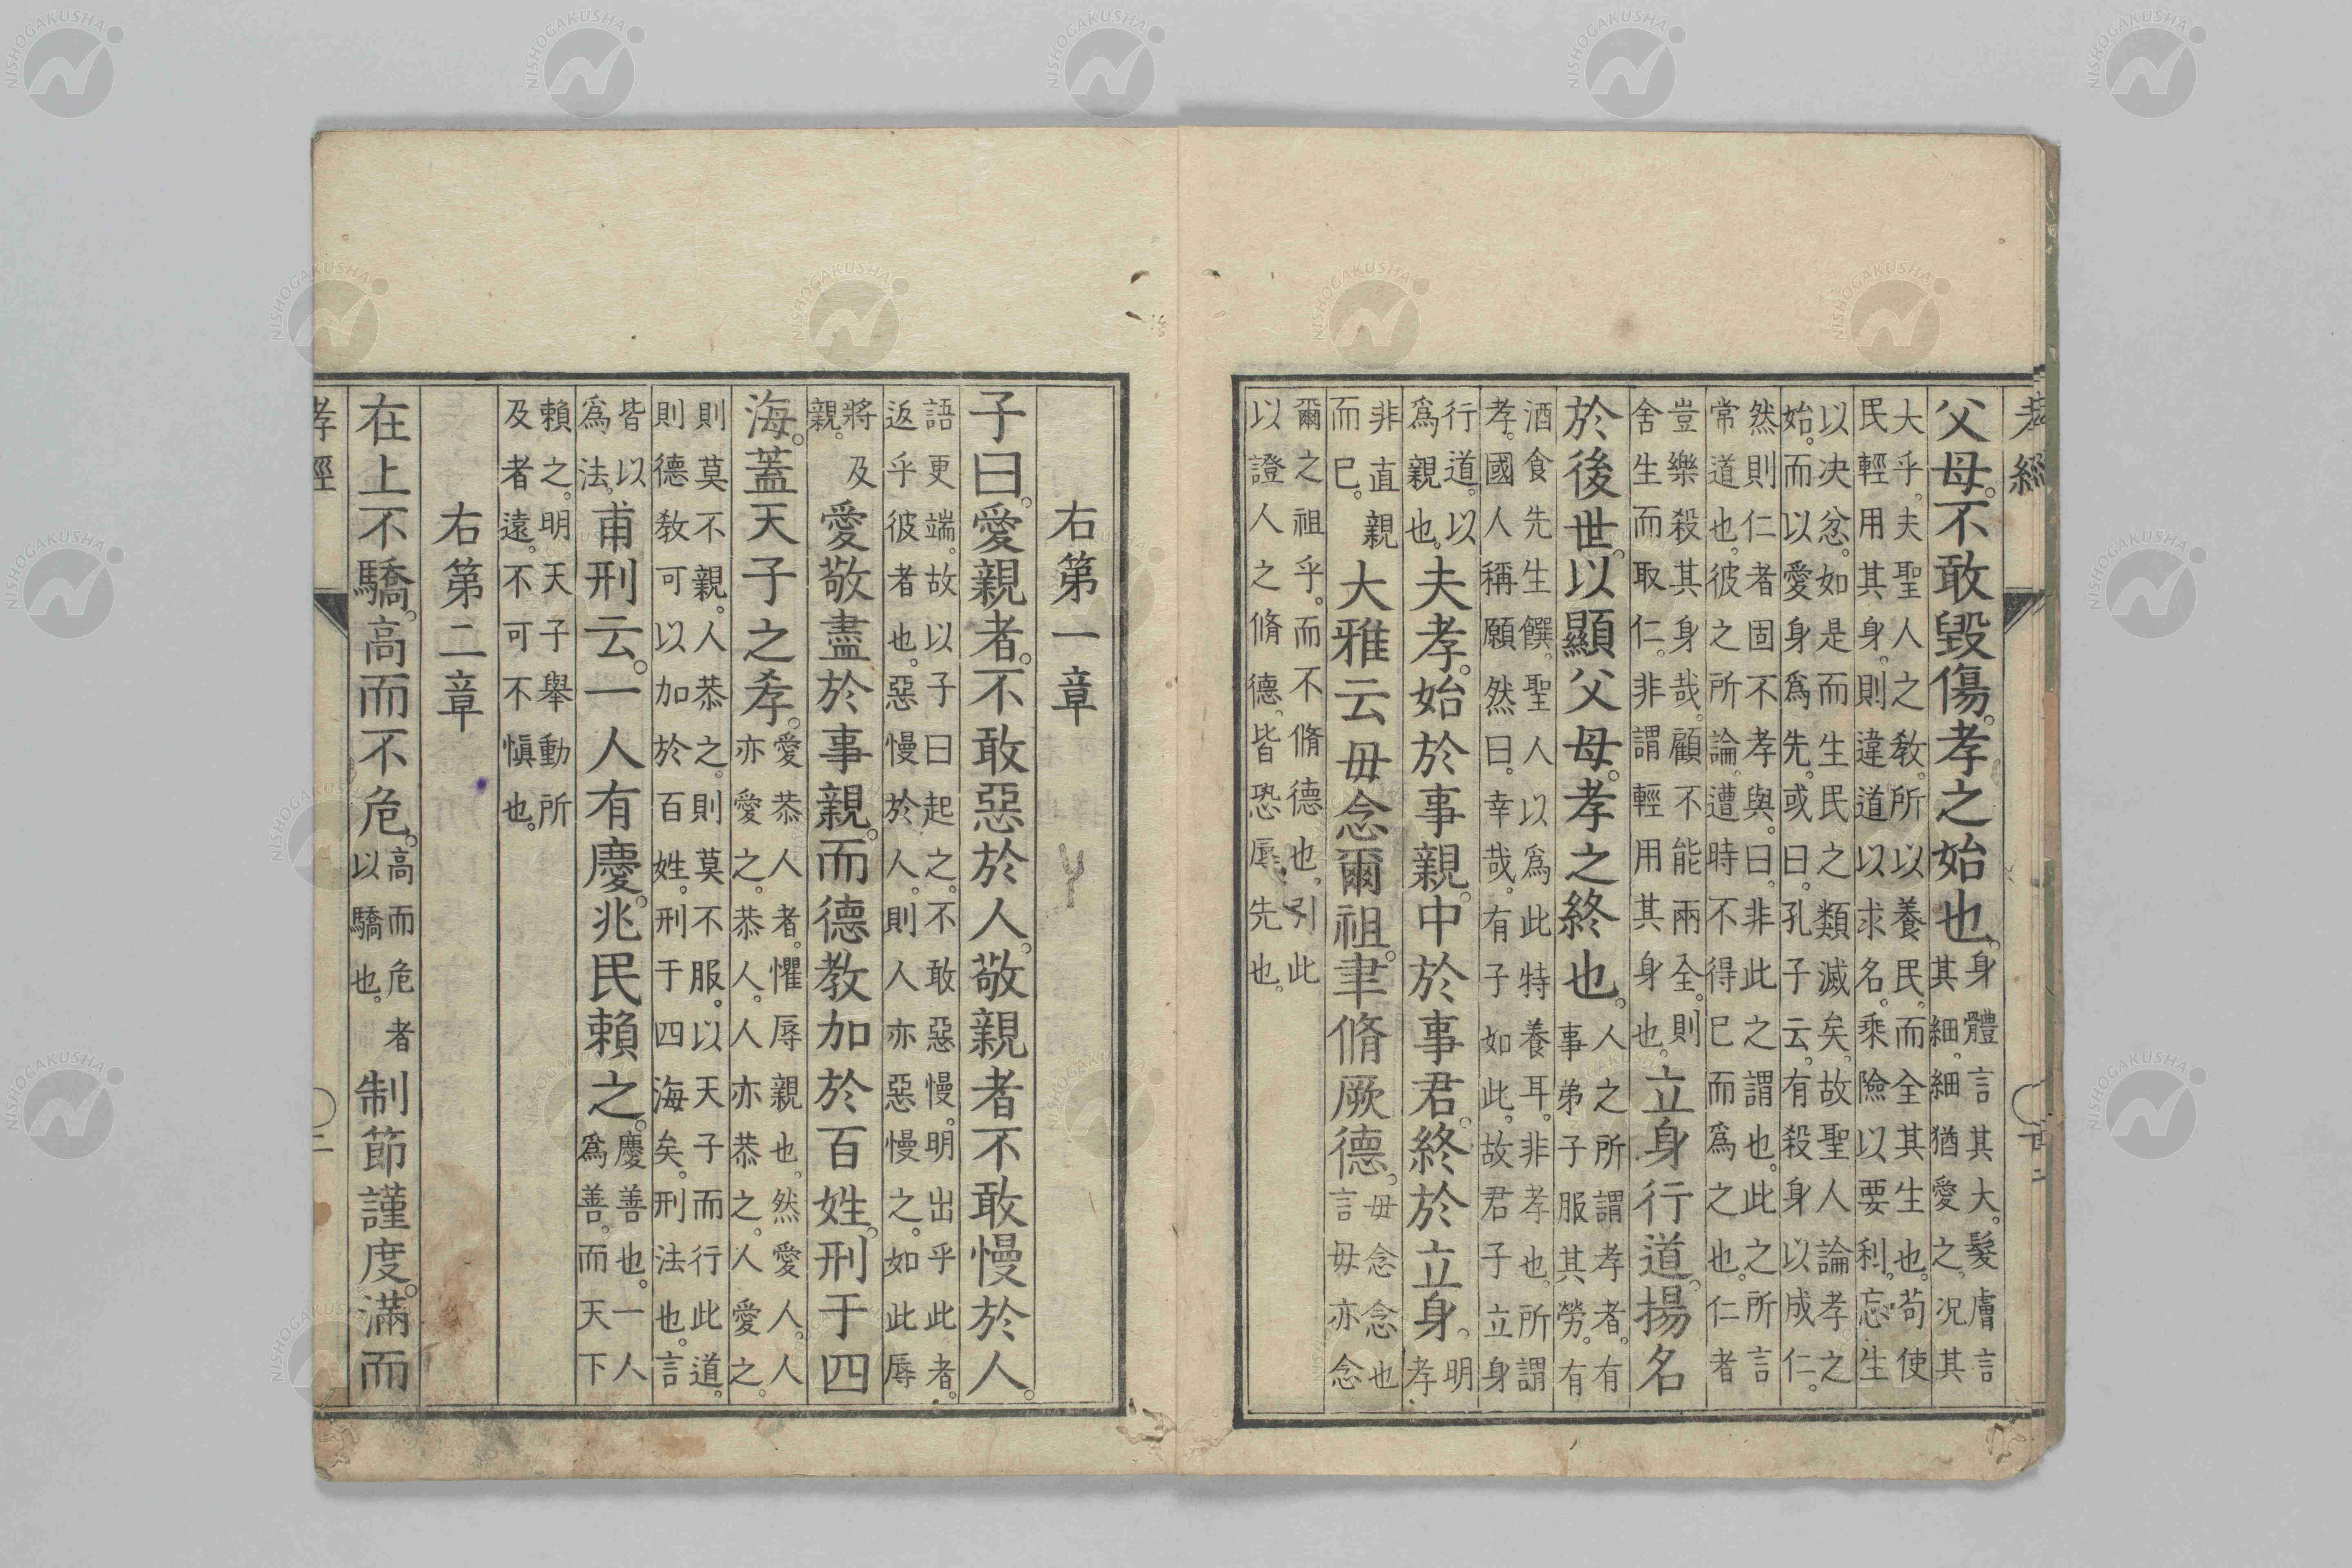 孝經
父母。不敢毀傷。孝之始也。身體言其大。髮膚言
其細。細猶愛之。况其
大乎。夫聖人之敎。所以養民。而全其生也。苟使
民輕用其身。則違道以求名。乘險以要利。忘生
以决忿。如是而生民之類滅矣。故聖人論孝之
始。而以愛身爲先。或曰。孔子云。有殺身以成仁。
然則仁者固不孝與。曰。非此之謂也。此之所言
常道也。彼之所論。遭時不得已而爲之也。仁者
豈樂殺其身哉。顧不能兩全。則
舍生而取仁。非謂輕用其身也。立身行道。揚名
於後世。以顯父母。孝之終也。人之所謂孝者。有
事弟子服其勞。有
酒食先生饌。聖人以爲此特養耳。非孝也。所謂
孝。國人稱願然曰。幸哉。有子如此。故君子立身
行道。以
爲親也。夫孝。始於事親。中於事君。終於立身。明
孝
非直親
而已。大雅云毋念爾祖。聿脩厥德。毋念念也
言毋亦念
爾之祖乎。而不脩德也。引此
以證人之脩德。皆恐辱先也。
右第一章
子曰。愛親者。不敢惡於人。敬親者不敢慢於人。
語更端。故以子曰起之。不敢惡慢。明出乎此者。
返乎彼者也。惡慢於人。則人亦惡慢之。如此辱
將及
親。愛敬盡於事親。而德教加於百姓。刑于四
海。蓋天子之孝。愛恭人者。懼辱親也。然愛人。人
亦愛之。恭人。人亦恭之。人愛之。
則莫不親。人恭之。則莫不服。以天子而行此道。
則德敎可以加於百姓。刑于四海矣。刑法也。言
皆以
爲法。甫刑云。一人有慶。兆民賴之。慶善也。一人
爲善。而天下
賴之。明天子舉動所
及者遠。不可不愼也。
右第二章
在上不驕。高而不危。高而危者
以驕也。制節謹度。滿而
孝經
二